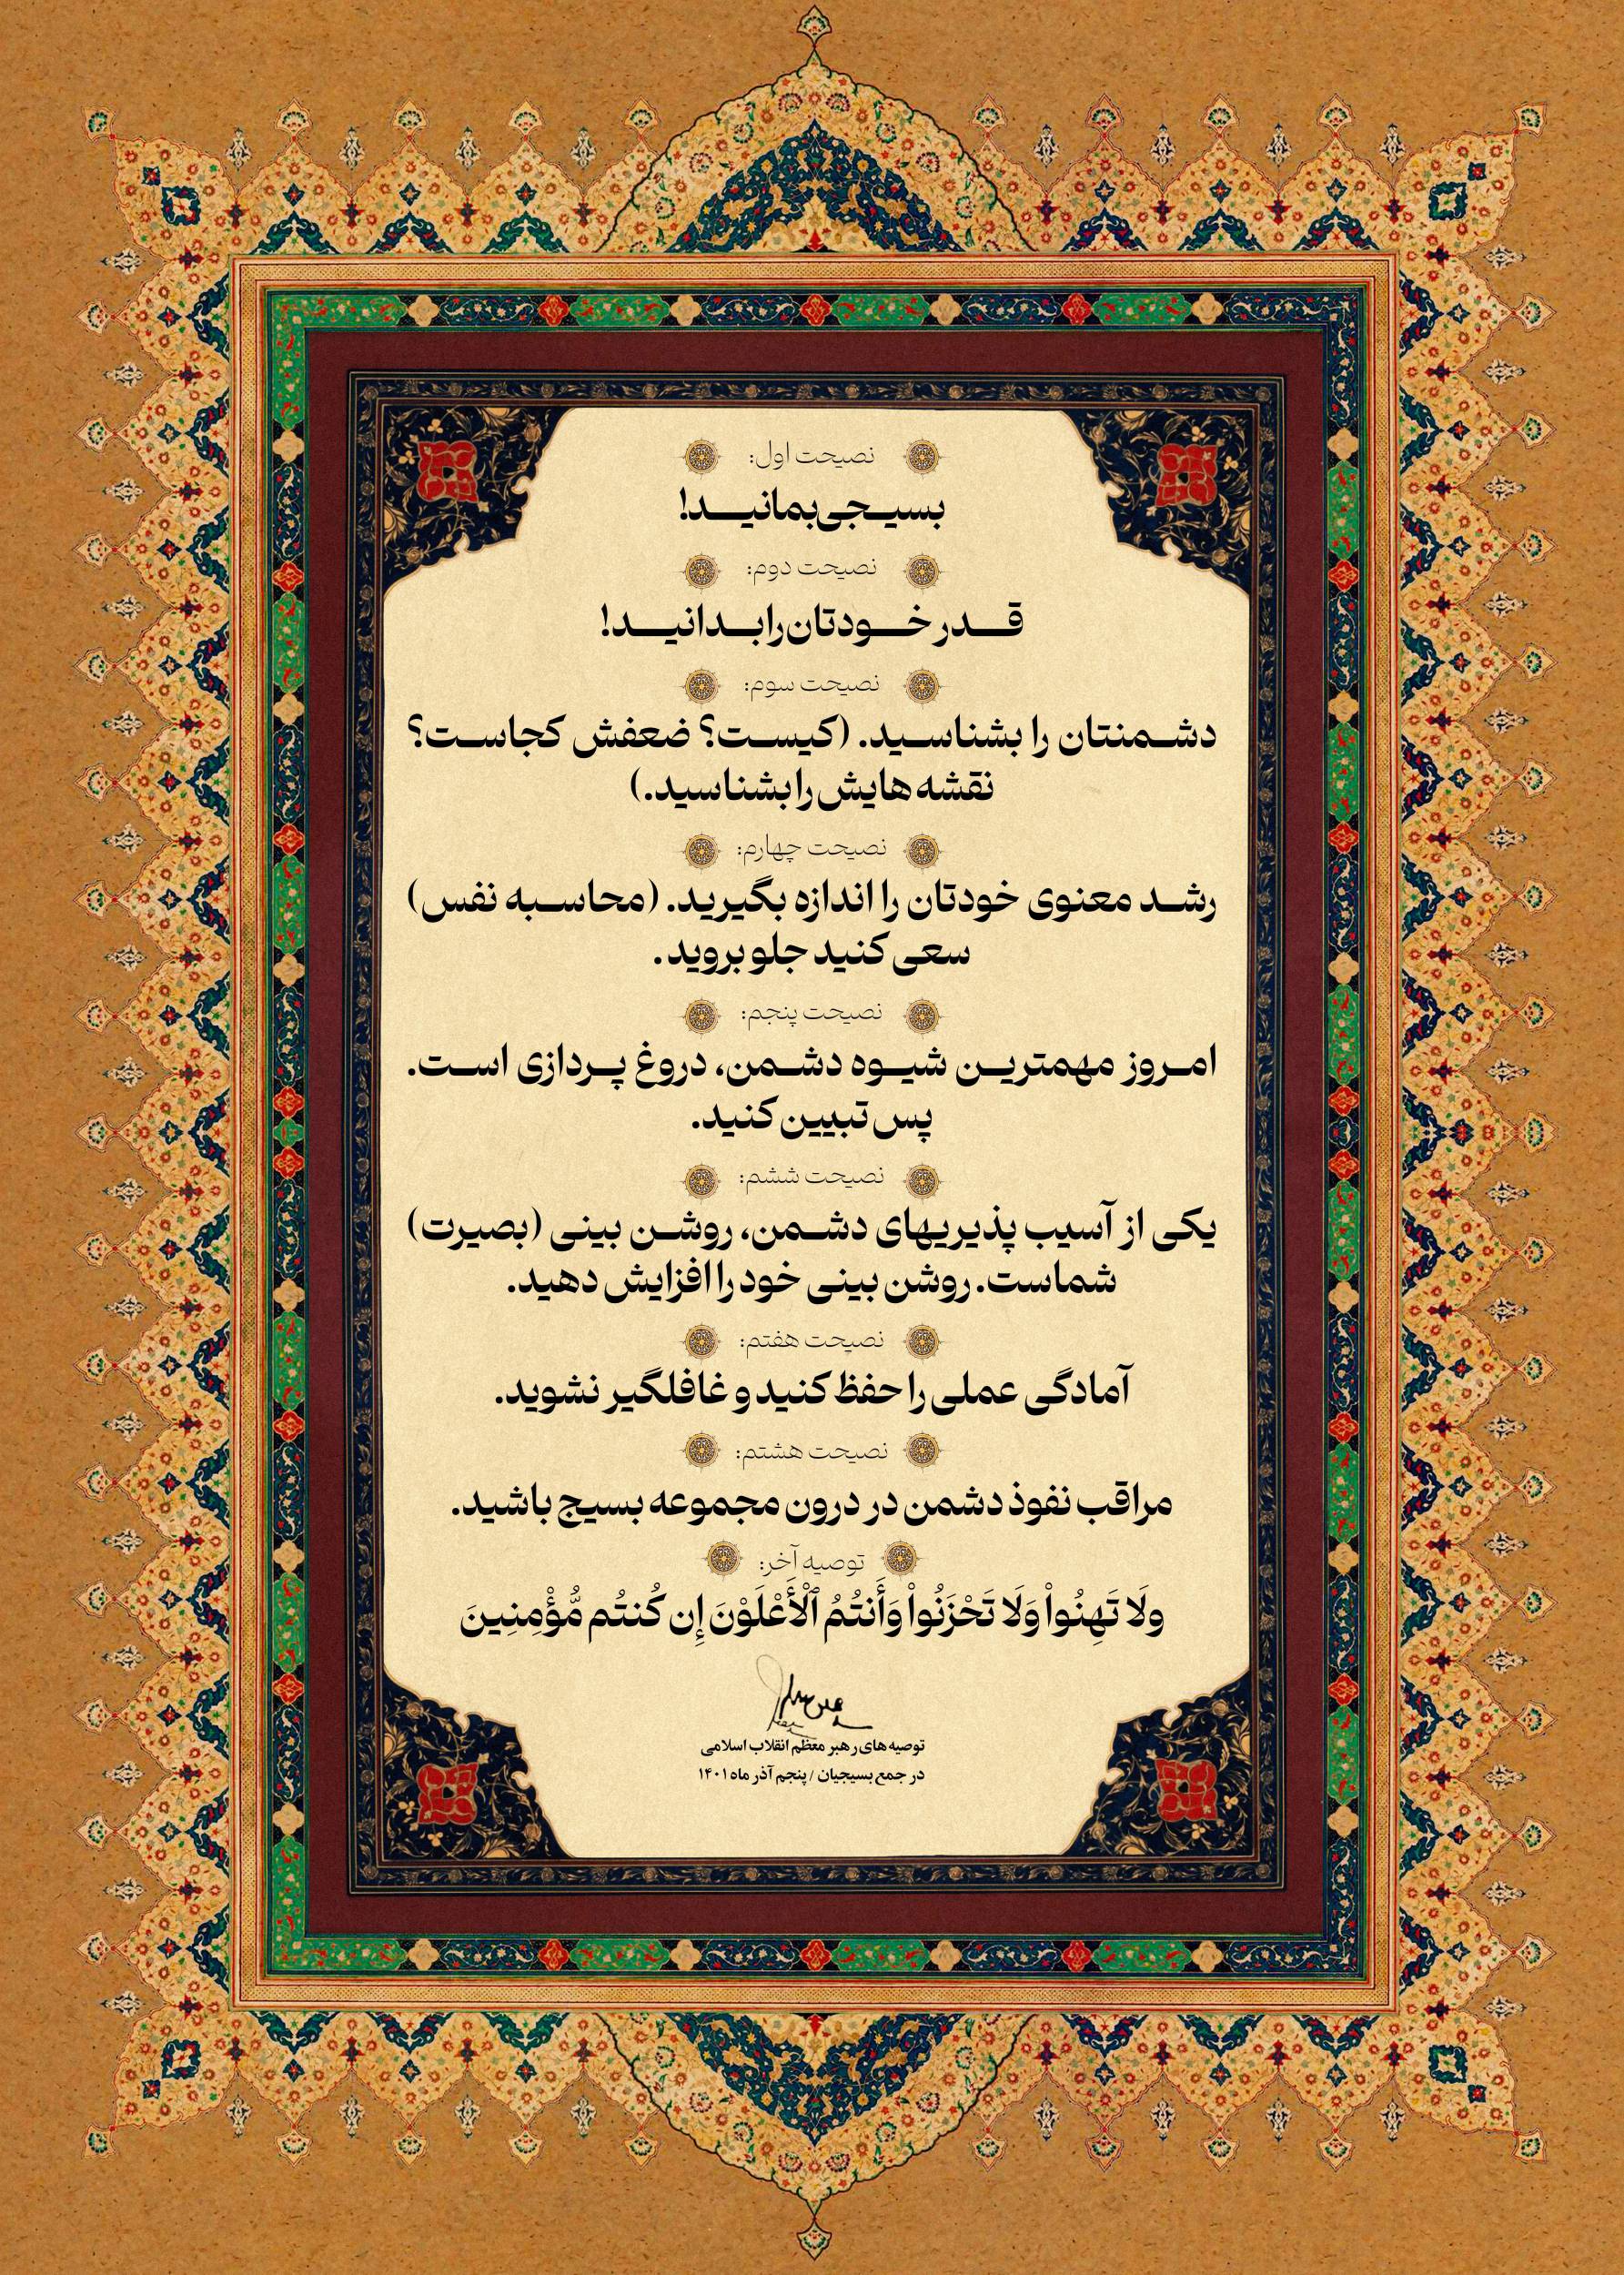 نصیحت اول:
بسیجی بمانید!
نصیحت دوم:
قدر خودتان را بدانید!
نصیحت سوم:
دشمنتان را بشناسید. (کیست؟ ضعفش کجاست؟
نقشه هایش را بشناسید.)
نصیحت چهارم:
رشد معنوی خودتان را اندازه بگیرید. (محاسبه نفس)
سعی کنید جلو بروید.
نصیحت پنجم:
امروز مهمترین شیوه دشمن، دروغ پردازی است.
پس تبیین کنید.
نصیحت ششم:
یکی از آسیب پذیریهای دشمن، روشن بینی (بصیرت)
شماست. روشن بینی خود را افزایش دهید.
نصیحت هفتم:
آمادگی عملی را حفظ کنید و غافلگیر نشوید.
نصیحت هشتم:
مراقب نفوذ دشمن در درون مجموعه بسیج باشید.
توصیه آخر:
ولَا تَهِنُواْ وَلَا تَحْزَنُواْ وَأَنتُمُ ٱلْأَعْلَوْنَ إِن كُنتُم مُّؤْمِنِينَ
توصیه های رهبر معظم انقلاب اسلامی
در جمع بسیجیان / پنجم آذر ماه ۱۴۰۱